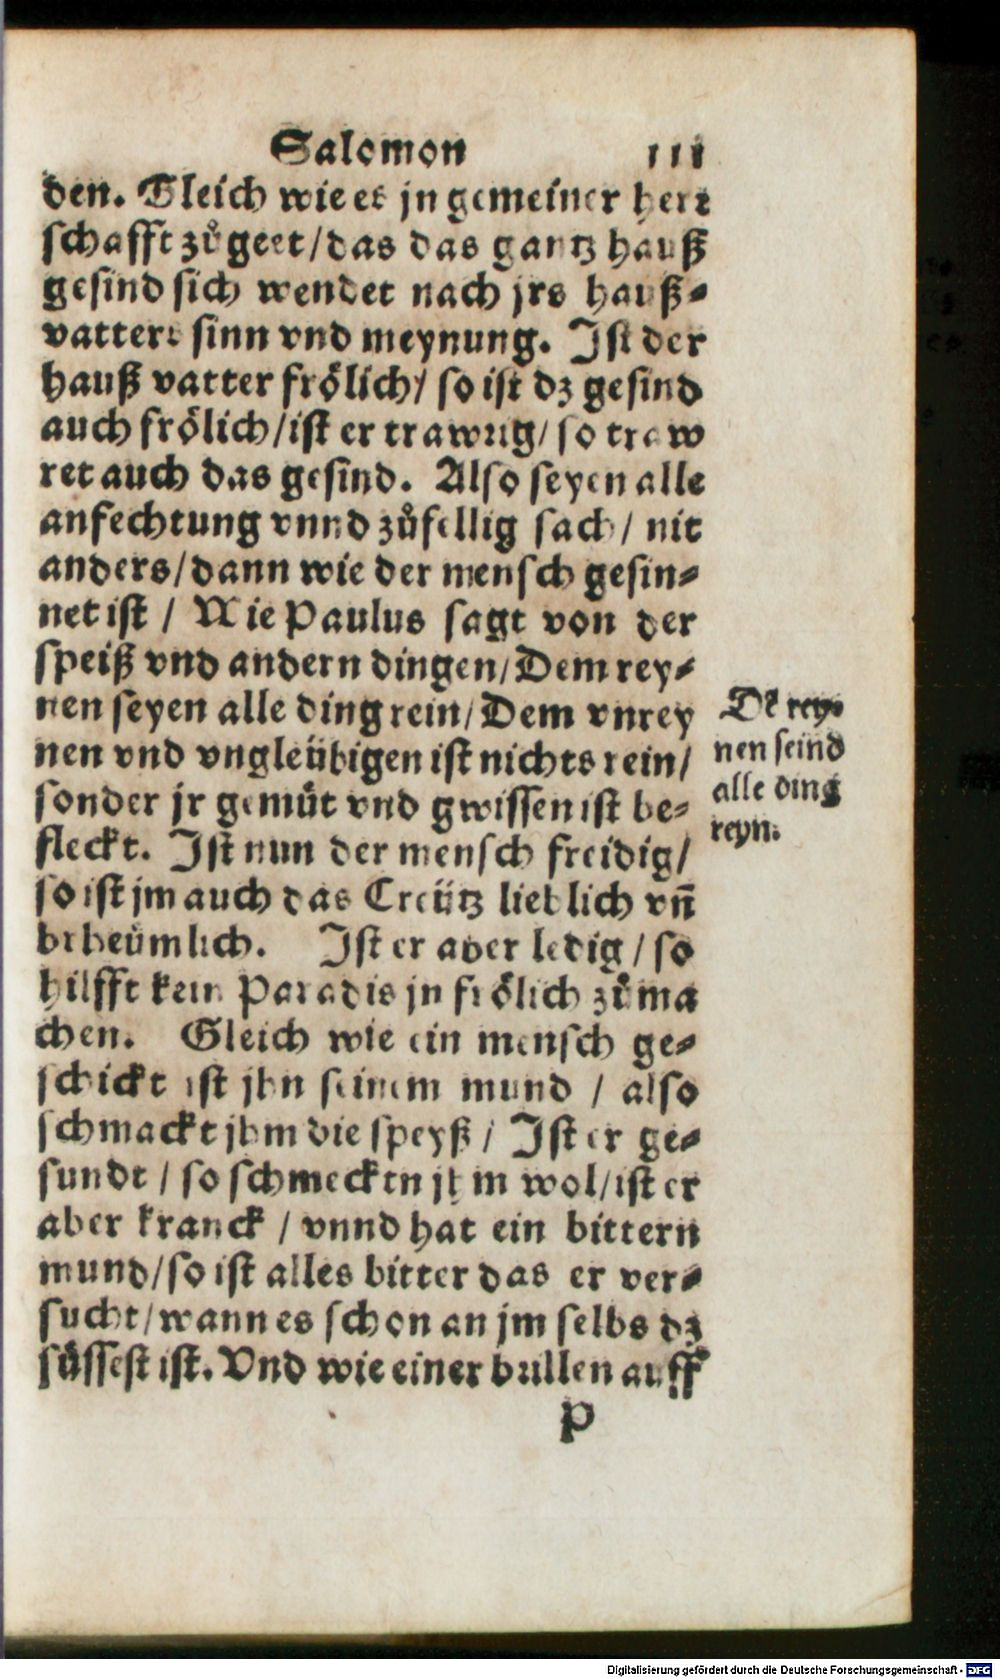 Salomon 111
den. Gleich wie es jn gemeiner herr
schafft zůgeet / das das gantz hauß
gesind sich wendet nach jrs hauß-
vatters sinn vnd meynung. Ist der
hauß vatter frölich / so ist dz gesind
auch frölich / ist er trawrig / so traw
ret auch das gesind. Also seyen alle
anfechtung vnnd zůfellig sach / nit
anders / dann wie der mensch gesin-
net ist / Wie Paulus sagt von der
speiß vnd andern dingen / Dem rey-
nen seyen alle ding rein / Dem vnrey
nen vnd vngleübigen ist nichts rein /
sonder jr gemüt vnd gwissen ist be-
fleckt. Ist nun der mensch freidig /
so ist jm auch das Creütz lieblich vñ
beheümlich. Ist er aber ledig / so
hilfft kein Paradis jn frölich zůma
chen. Gleich wie ein mensch ge-
schickt ist jhn seinem mund / also
schmackt jhm die speyß / Ist er ge-
sundt / so schmecktn jhm wol / ist er
aber kranck / vnnd hat ein bittern
mund / so ist alles bitter das er ver-
sucht / wann es schon an jm selbs dz
süssest ist. Vnd wie einer bullen auff
P
Dē rey-
nen seind
alle ding
reyn.
Digitalisierung gefördert durch die Deutsche Forschungsgemeinschaft - DFG